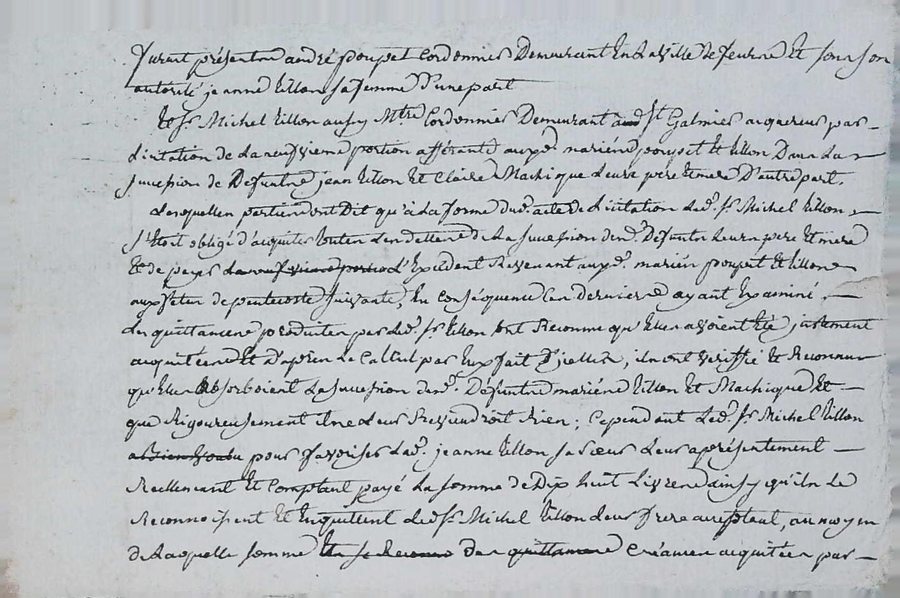 furent présents andré poupet Cordonnier Demeurant En La ville de feurs Et sous son
autorité jeanne Villon sa femme D'une part
Et Sr. Michel Villon aussy Mtre Cordonnier Demeurant a St Galmier acquereur par
Licitation de La neufvieme portion afférante auxd. mariés poupet et Villon Dans La
succession de Defunts jean Villon Et Claire Machique Leurs pere Et mere D'autre part.
Lesquelles parties ont Dit qu'à La forme dud. acte de Licitation Led. Sr. Michel Villon
s'étoit obligé d'acquiter toutes Les dettes de La succession desd. Defunts Leurs pere Et mere
Et de payer La neufvieme portion L'Excédent Revenant auxd. mariés poupet Et Villon
aux fetes de pentecoste suivante, En conséquence Ces Derniers ayant Examiné
Les quittances produites par Led. Sr. Villon ont Reconnu qu'Elles avoient Eté justement
acquitées Et D'après Le Calcul par Eux fait D'icelles, ils ont veriffié Et Reconnu
qu'Elles absorboient La succession desd. Défunts mariés Villon Et Machique Et
que Rigoureusement il ne Leur Reviendroit Rien; Cependant Led. Sr. Michel Villon
pour favoriser Lad. jeanne Villon sa sœur Leur a présentement
Reellement Et Comptant payé La somme de Dix huit Livres ainsy qu'ils Le
Reconnoissent Et En quittent Led. Sr. Michel Villon Leur frere acceptant, au moyen
de Laquelle somme Et se Reconnu des quittances Créances acquitées par